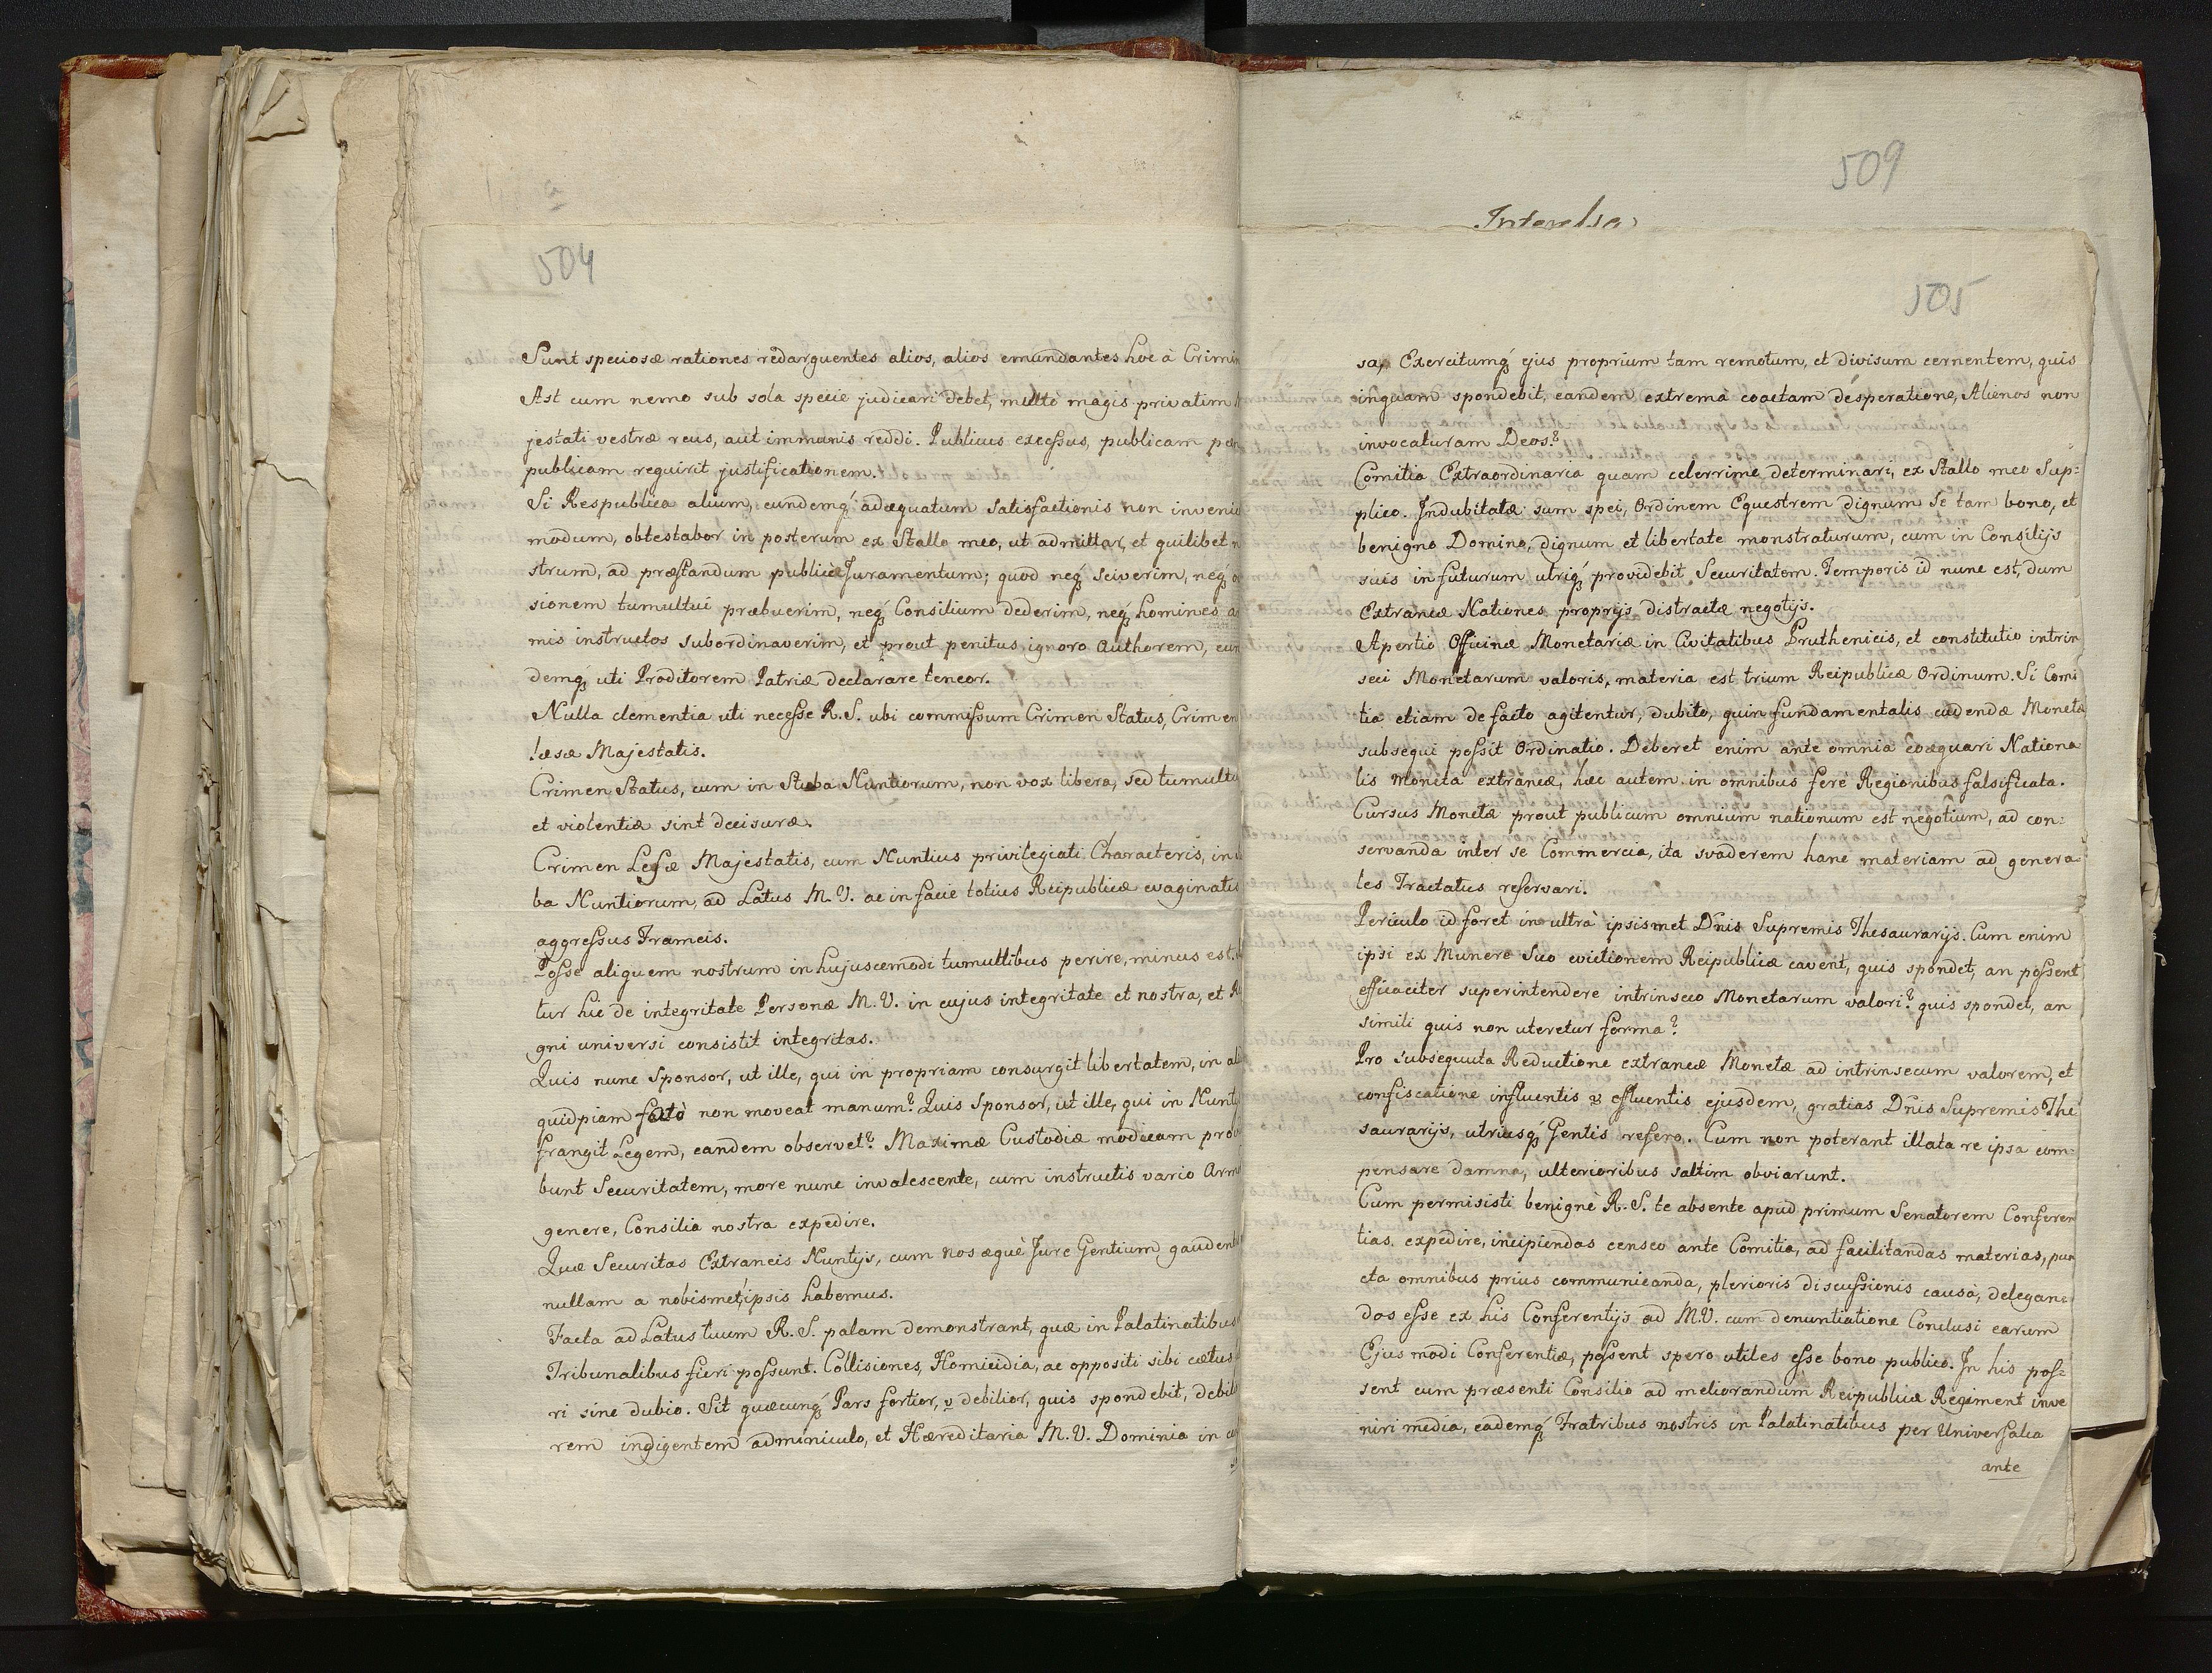 504
Sunt speciosæ rationes redarguentes alios, alios emundantes hoc à Crimin
Ast cum nemo sub sola specie judicari debet, multò magis privatim
jestati vestræ reus, aut immunis reddi. Publicus excessus, publicam pœn
publicam requirit justificationem.
Si Respublica alium, eundemq́ꝫ adæquatum satisfactionis non invenie
modum, obtestabor in posterum ex Stallo meo, ut admittar, et quilibet n
strum, ad præstandum publice Juramentum; quod neq́ꝫ sciverim, neq́ꝫ o
sionem tumultui præbuerim, neq́ꝫ Consilium dederim, neq́ꝫ homines a
mis instructos subordinaverim, et prout penitus ignoro Authorem, eun
demq́ꝫ uti Proditorem Patriæ declarare teneor.
Nulla clementia uti necesse R. S. ubi commissum Crimen Status, Crimen
læsæ Majestatis.
Crimen Status, cum in Stuba Nuntiorum, non vox libera, sed tumultu
et violentiæ sint decisuræ.
Crimen Lesæ Majestatis, cum Nuntius privilegiati Characteris, in
ba Nuntiorum, ad Latus M. V. ac in facie totius Reipublicæ evaginatis
aggressus Frameis.
Posse aliquem nostrum in hujuscemodi tumultibus perire, minus est.
tur hic de integritate Personæ M. V. in cujus integritate et nostra, et R
gni universi consistit integritas.
Quis nunc Sponsor, ut ille, qui in propriam consurgit libertatem, in al
quidpiam factò non moveat manum? Quis Sponsor, ut ille, qui in Nunt
frangit Legem, eandem observet? Maximæ Custodiæ modicam prov
bunt Securitatem, more nunc invalescente, cum instructis vario Arm
genere, Consilia nostra expedire.
Quæ Securitas Extraneis Nuntijs, cum nos æquè Jure Gentium gaudent
nullam a nobismet, ipsis habemus.
Facta ad Latus tuum R. S. palam demonstrant, quæ in Palatinatibus
Tribunalibus fieri possunt. Collisiones, Homicidia, ac oppositi sibi cœtus
ri sine dubio. Sit quæcunq́ꝫ Pars fortior, v debilior, quis spondebit, debil
rem indigentem adminiculo, et Hæreditaria M. V. Dominia in
509
Interesa
505
sa, Exercitumq́ꝫ ejus proprium tam remotum, et divisum cernentem, quis
inquam spondebit, eandem extremâ coactam desperatione, Alienos non
invocaturam Deos?
Comitia Extraordinaria quam celerrime determinari, ex Stallo meo Sup:
plico. Indubitatæ sum spei, Ordinem Equestrem dignum se tam bono, et
benigno Domino, dignum et libertate monstraturum, cum in Consilijs
suis in futurum utriq́ꝫ providebit Securitatem. Temporis id nunc est, dum
Extraneæ Nationes proprijs distractæ negotijs.
Apertio Officinæ Monetariæ in Civitatibus Pruthenicis, et constitutio intrin
seci Monetarum valoris, materia est trium Reipublicæ Ordinum. Si Comi
tia etiam de facto agitentur, dubito, quin fundamentalis cudendæ Monetæ
subsequi possit Ordinatio. Deberet enim ante omnia coæquari Nationa
lis Moneta extraneæ, hæc autem in omnibus ferè Regionibus falsificata.
Cursus Monetæ prout publicum omnium nationum est negotium, ad con:
servanda inter se Commercia, ita svaderem hanc materiam ad genera
les Tractatus reservari.
Periculo id foret in ultrà ipsismet Dn̄is Supremis Thesaurarijs. Cum enim
ipsi ex Munere Suo evictionem Reipublicæ cavent, quis spondet, an possent
efficaciter superintendere intrinseco Monetarum valori? quis spondet, an
simili quis non uteretur forma?
Pro subsequuta Reductione extraneæ Monetæ ad intrinsecum valorem, et
confiscatione influentis v effluentis ejusdem, gratias Dn̄is Supremis The
saurarijs, utriusq́ꝫ Gentis refero. Cum non poterant illata re ipsa com:
pensare damna, ulterioribus saltim obviarunt.
Cum permisisti benignè R. S. te absente apud primum Senatorem Conferen
tias expedire, incipiendas censeo ante Comitia, ad facilitandas materias, pun
cta omnibus prius communicanda, plerioris discussionis causâ, delegan:
dos esse ex his Conferentijs ad M. V. cum denuntiatione Conclusi earum
Ejusmodi Conferentiæ, possent spero utiles esse bono publico. In his pos:
sent cum præsenti Consilio ad meliorandum Reipublicæ Regiment inve
niri media, eademq́ꝫ Fratribus nostris in Palatinatibus per Universalia
ante